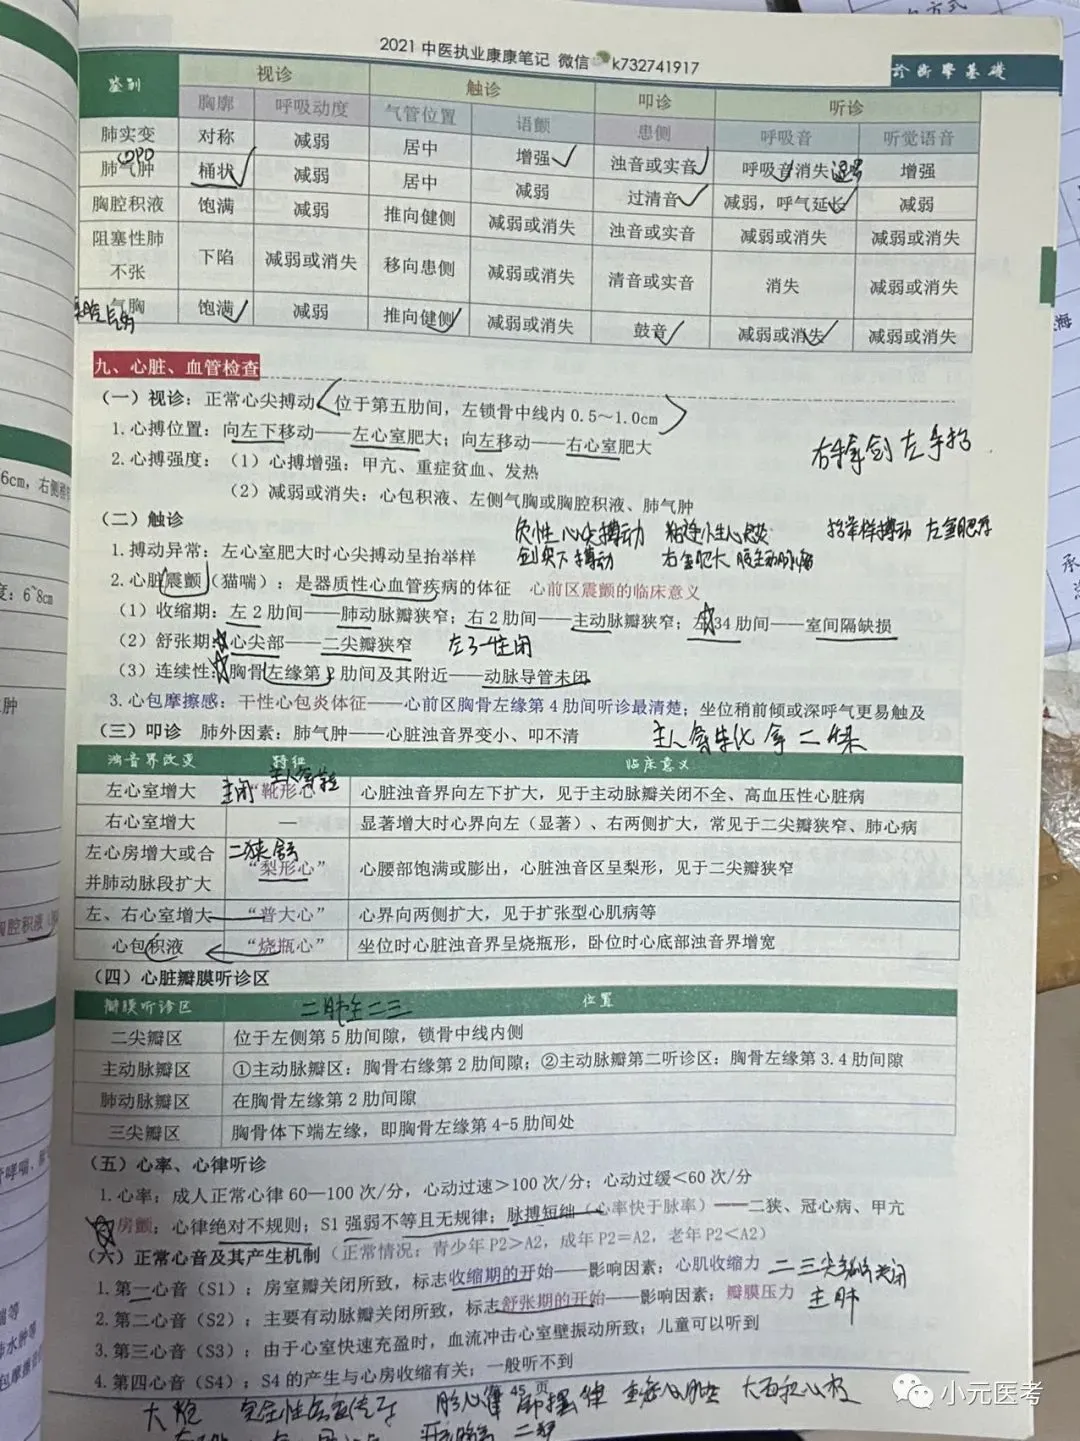 2021 中医执业康康笔记 微信 k732741917
诊断学基础
鉴别 视诊 触诊 叩诊 听诊
胸廓 呼吸动度 气管位置 语颤 患侧 呼吸音 听觉语音
肺实变 对称 减弱 居中 增强 浊音或实音 呼吸音消失 增强
COPD
肺气肿 桶状 减弱 居中 减弱 过清音 减弱，呼气延长 减弱
胸腔积液 饱满 减弱 推向健侧 减弱或消失 浊音或实音 减弱或消失 减弱或消失
阻塞性肺不张 下陷 减弱或消失 移向患侧 减弱或消失 清音或实音 消失 减弱或消失
气胸 饱满 减弱 推向健侧 减弱或消失 鼓音 减弱或消失 减弱或消失
九、心脏、血管检查
（一）视诊：正常心尖搏动（位于第五肋间，左锁骨中线内 0.5～1.0cm）
1.心搏位置：向左下移动——左心室肥大；向左移动——右心室肥大
2.心搏强度：（1）心搏增强：甲亢、重症贫血、发热
右手拿剑 左手抬
（2）减弱或消失：心包积液、左侧气胸或胸腔积液、肺气肿
（二）触诊
负性心尖搏动 粘连性心包炎 抬举样搏动 左室肥厚
1.搏动异常：左心室肥大时心尖搏动呈抬举样
剑突下搏动 右室肥大 腹主动脉瘤
2.心脏震颤（猫喘）：是器质性心血管疾病的体征 心前区震颤的临床意义
（1）收缩期：左 2 肋间——肺动脉瓣狭窄；右 2 肋间——主动脉瓣狭窄；左 34 肋间——室间隔缺损
（2）舒张期：心尖部——二尖瓣狭窄
（3）连续性：胸骨左缘第 2 肋间及其附近——动脉导管未闭
3.心包摩擦感：干性心包炎体征——心前区胸骨左缘第 4 肋间听诊最清楚；坐位稍前倾或深呼气更易触及
（三）叩诊 肺外因素：肺气肿——心脏浊音界变小、叩不清
浊音界改变 特征 临床意义
左心室增大 “靴形心” 心脏浊音界向左下扩大，见于主动脉瓣关闭不全、高血压性心脏病
主闭
右心室增大 — 显著增大时心界向左（显著）、右两侧扩大，常见于二尖瓣狭窄、肺心病
左心房增大或合并肺动脉段扩大 “梨形心” 心腰部饱满或膨出，心脏浊音区呈梨形，见于二尖瓣狭窄
二狭
左、右心室增大 “普大心” 心界向两侧扩大，见于扩张型心肌病等
心包积液 “烧瓶心” 坐位时心脏浊音界呈烧瓶形，卧位时心底部浊音界增宽
（四）心脏瓣膜听诊区
瓣膜听诊区 位置
二肺主二三
二尖瓣区 位于左侧第 5 肋间隙，锁骨中线内侧
主动脉瓣区 ①主动脉瓣区：胸骨右缘第 2 肋间隙；②主动脉瓣第二听诊区：胸骨左缘第 3.4 肋间隙
肺动脉瓣区 在胸骨左缘第 2 肋间隙
三尖瓣区 胸骨体下端左缘，即胸骨左缘第 4-5 肋间处
（五）心率、心律听诊
1.心率：成人正常心律 60—100 次/分，心动过速＞100 次/分；心动过缓＜60 次/分
房颤；心律绝对不规则；S1 强弱不等且无规律；脉搏短绌（心率快于脉率）——二狭、冠心病、甲亢
（六）正常心音及其产生机制（正常情况：青少年 P2＞A2，成年 P2=A2，老年 P2＜A2）
1.第一心音（S1）：房室瓣关闭所致，标志收缩期的开始——影响因素：心肌收缩力
2.第二心音（S2）：主要有动脉瓣关闭所致，标志舒张期的开始——影响因素：瓣膜压力
主肺
3.第三心音（S3）：由于心室快速充盈时，血流冲击心室壁振动所致；儿童可以听到
4.第四心音（S4）：S4 的产生与心房收缩有关；一般听不到
45 页
小元医考
6cm，右侧
度：6~8cm
胸腔积液